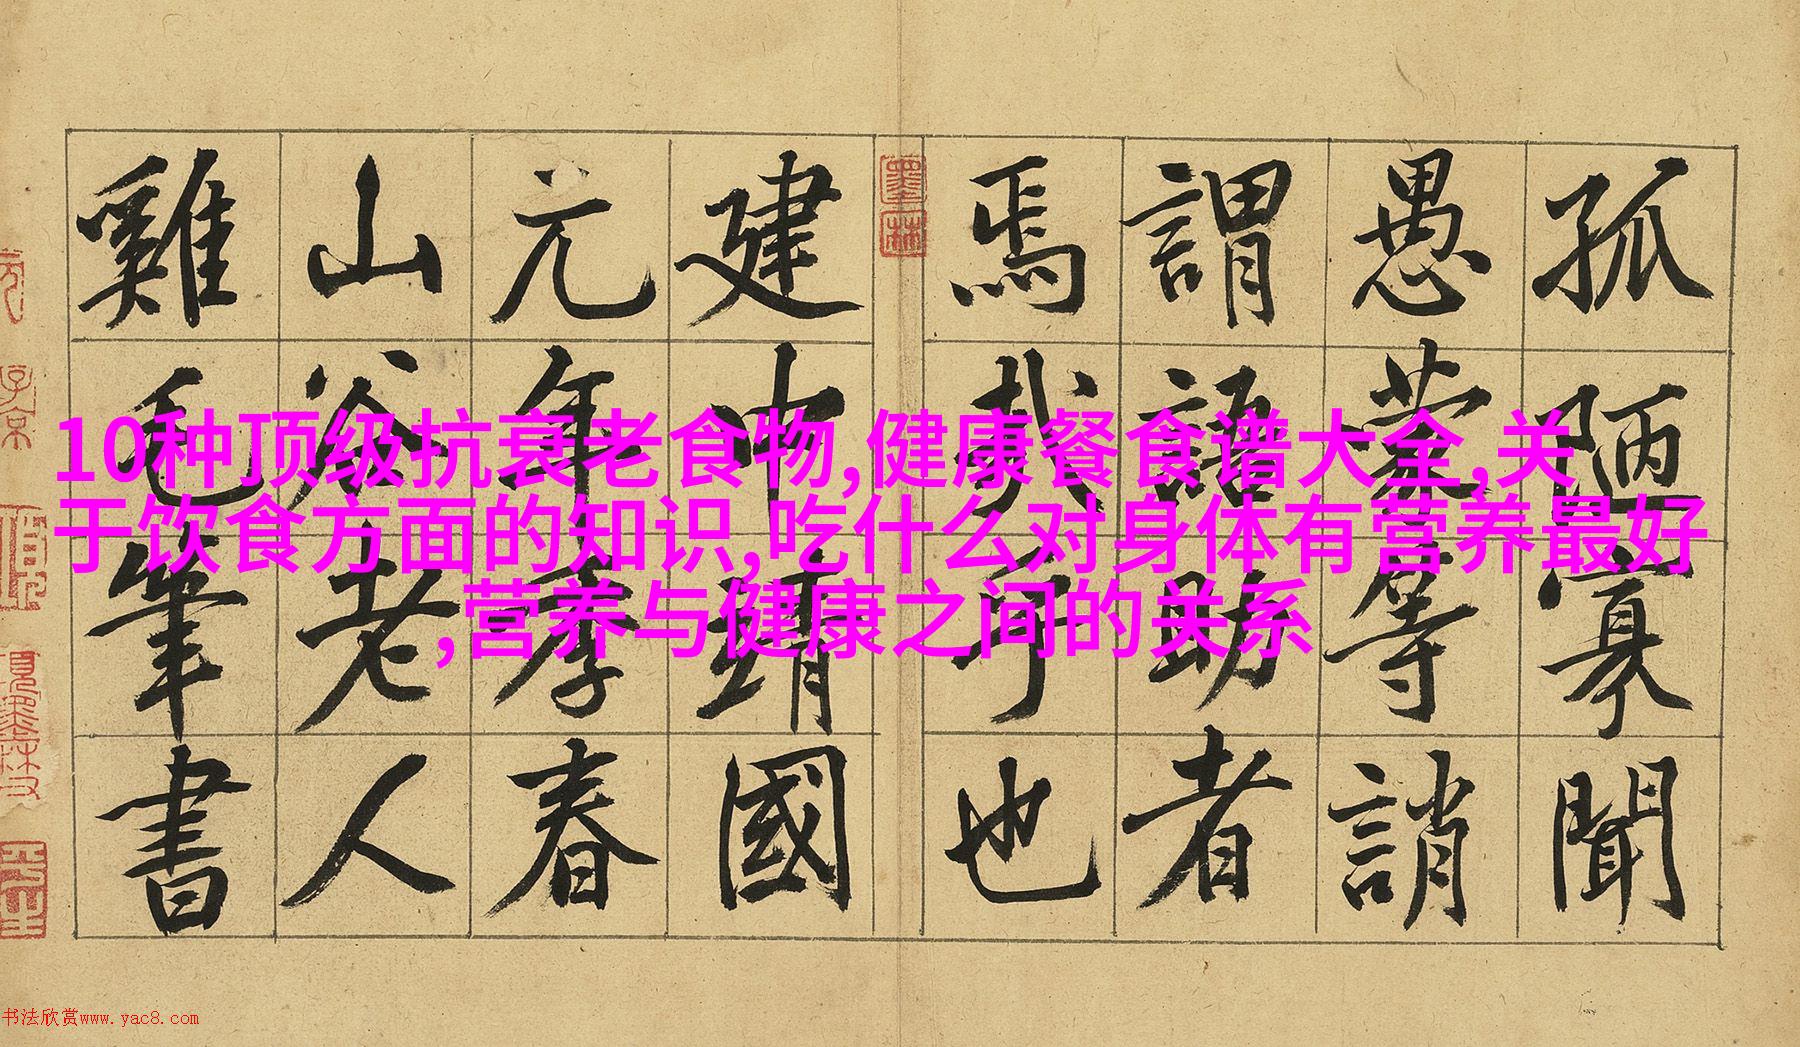 孤陋寡聞
愚蒙等誚
謂語助者
焉哉乎也
建中靖國
元年季春
山谷老人
雞毛筆書
10种顶级抗衰老食物,健康餐食谱大全,关
于饮食方面的知识,吃什么对身体有营养最好
,营养与健康之间的关系
墨林
子京
书法欣赏www.yac8.com